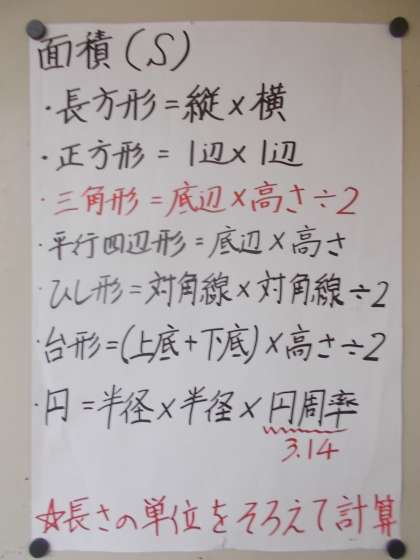 面積(S)
・長方形=縦×横
・正方形=1辺×1辺
・三角形=底辺×高さ÷2
・平行四辺形=底辺×高さ
・ひし形=対角線×対角線÷2
・台形=(上底+下底)×高さ÷2
・円=半径×半径×円周率
3.14
☆長さの単位をそろえて計算